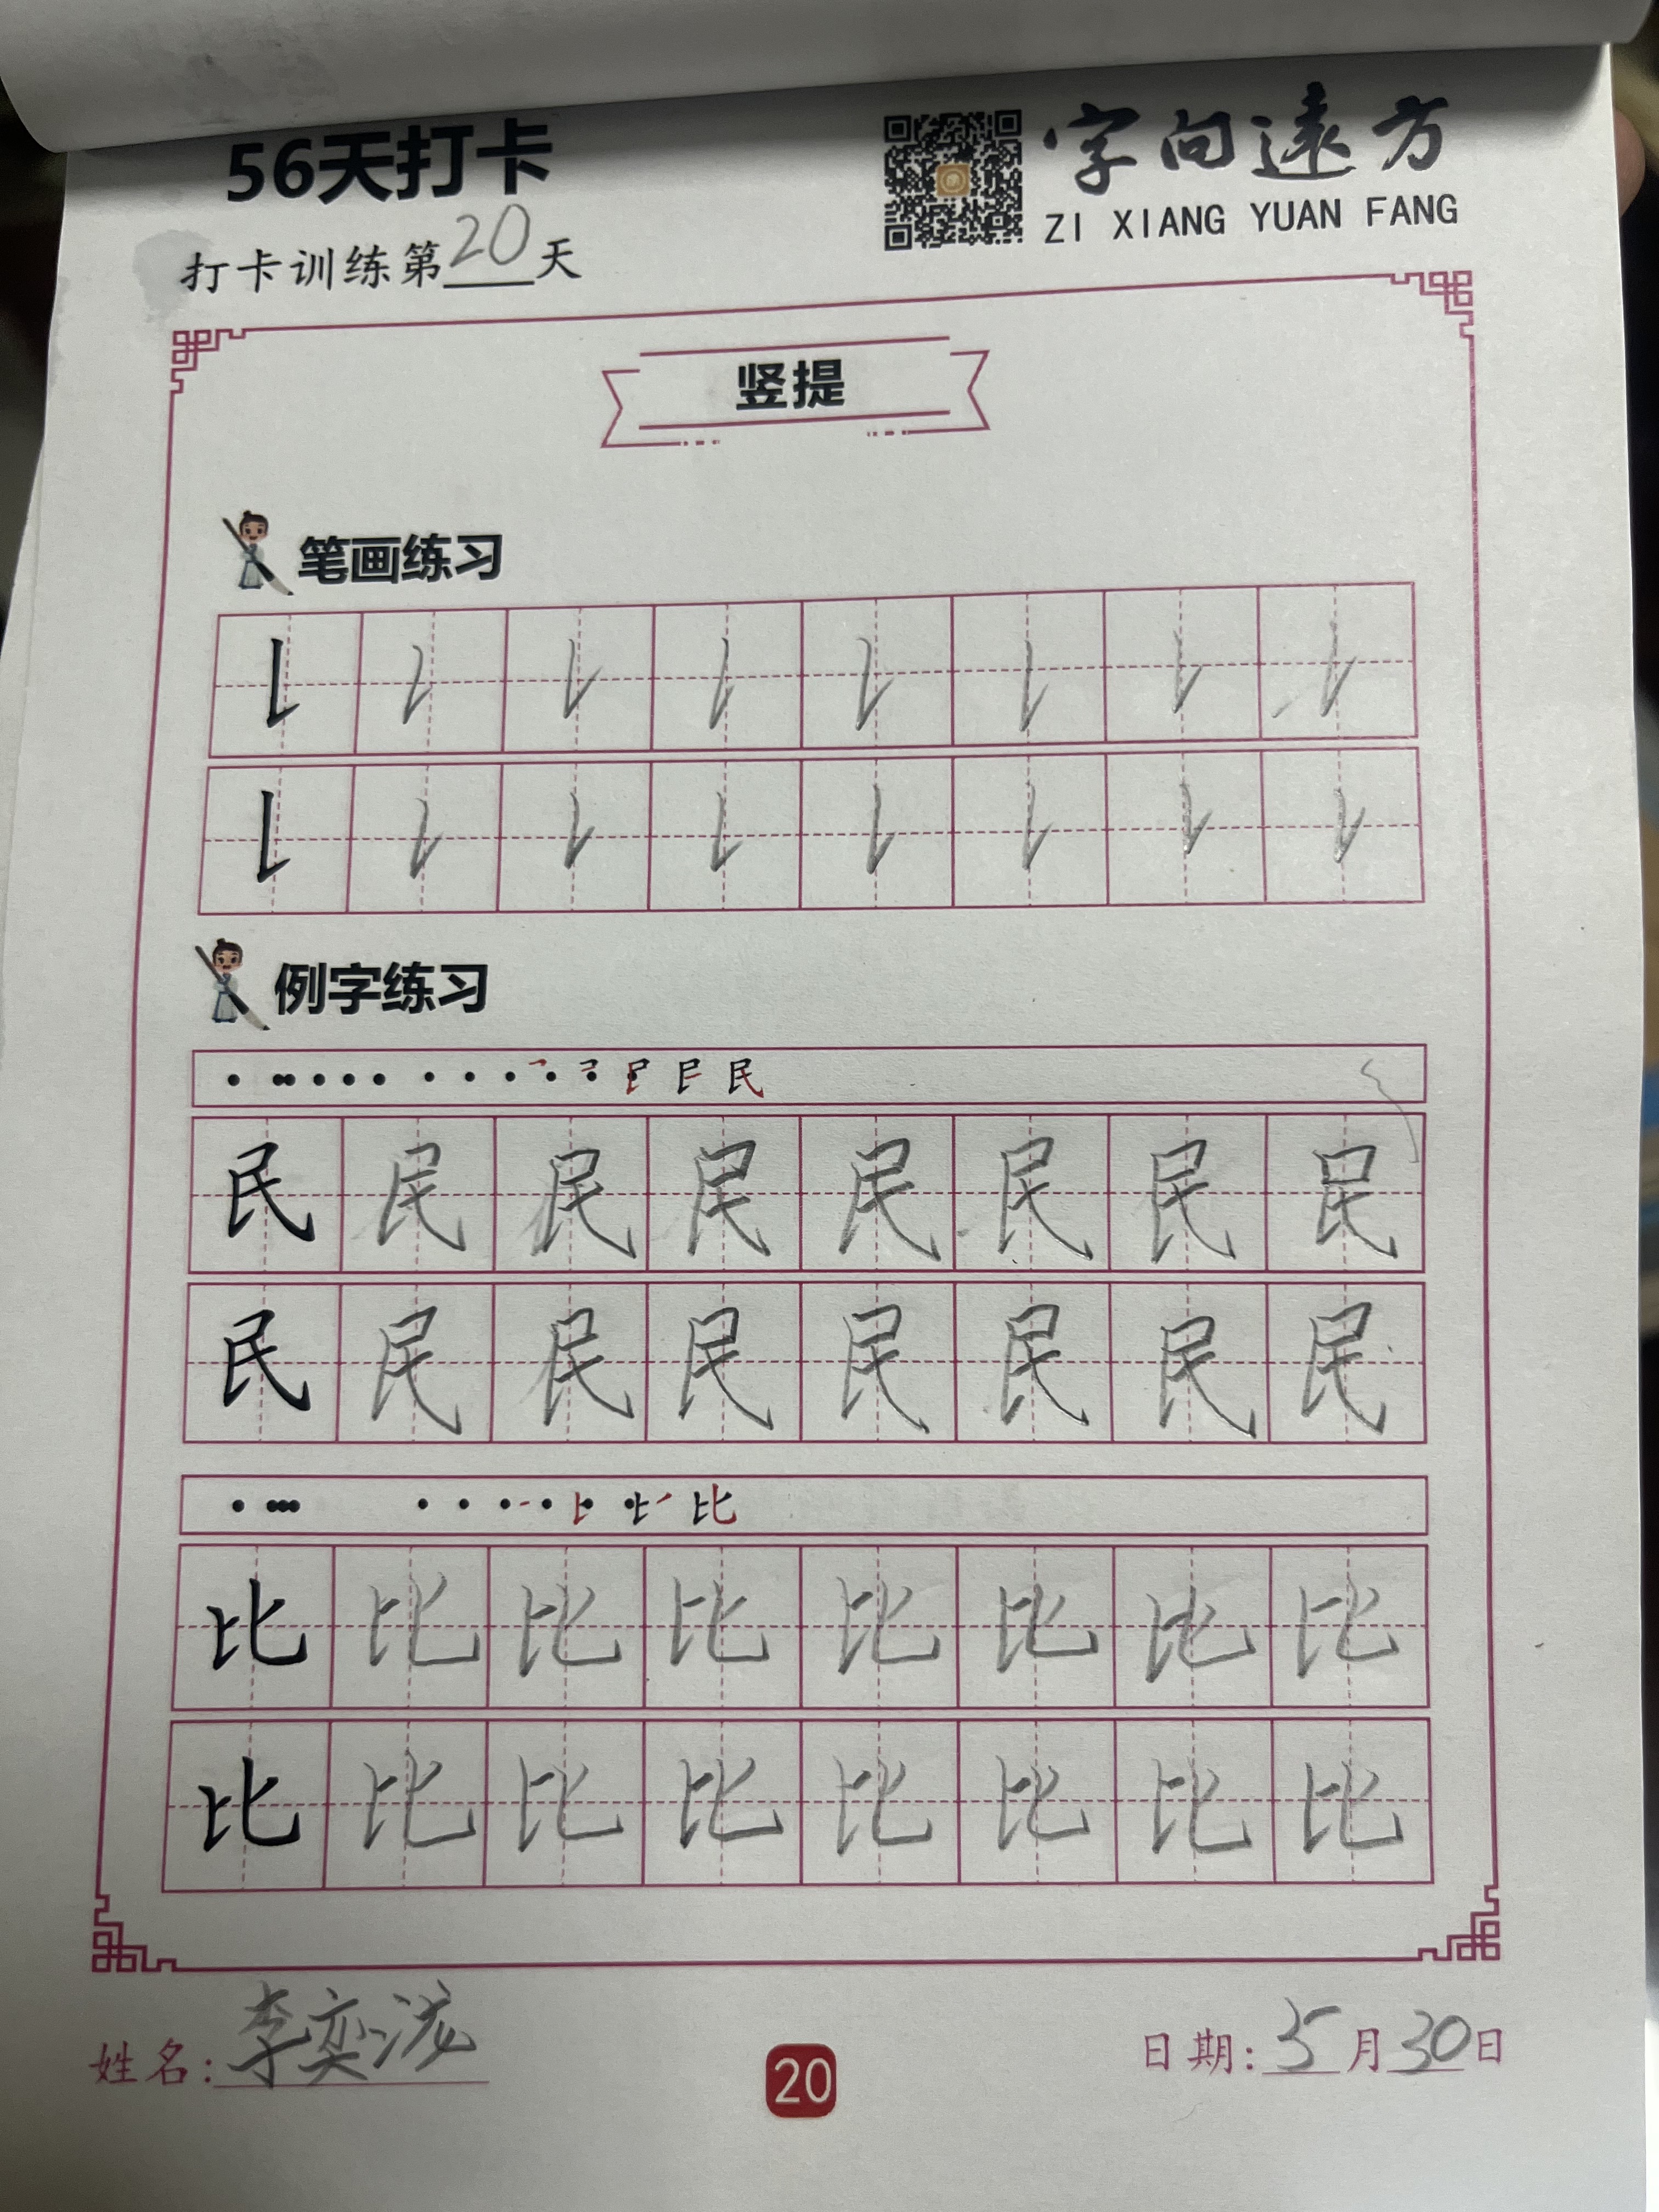 56天打卡
字向遠方
ZI XIANG YUAN FANG
打卡训练第20天
竖提
笔画练习
例字练习
民
民 民 民 民 民 民 民 民
民 民 民 民 民 民 民 民
比
比 比 比 比 比 比 比 比
比 比 比 比 比 比 比 比
姓名:李奕泷
20
日期:5月30日